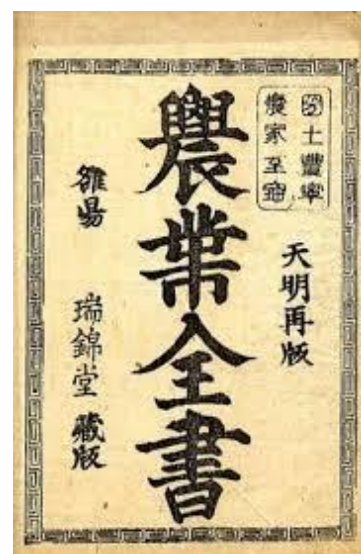 土豐寧
農家至寳
天明再版
農業全書
雒陽 瑞錦堂 藏版